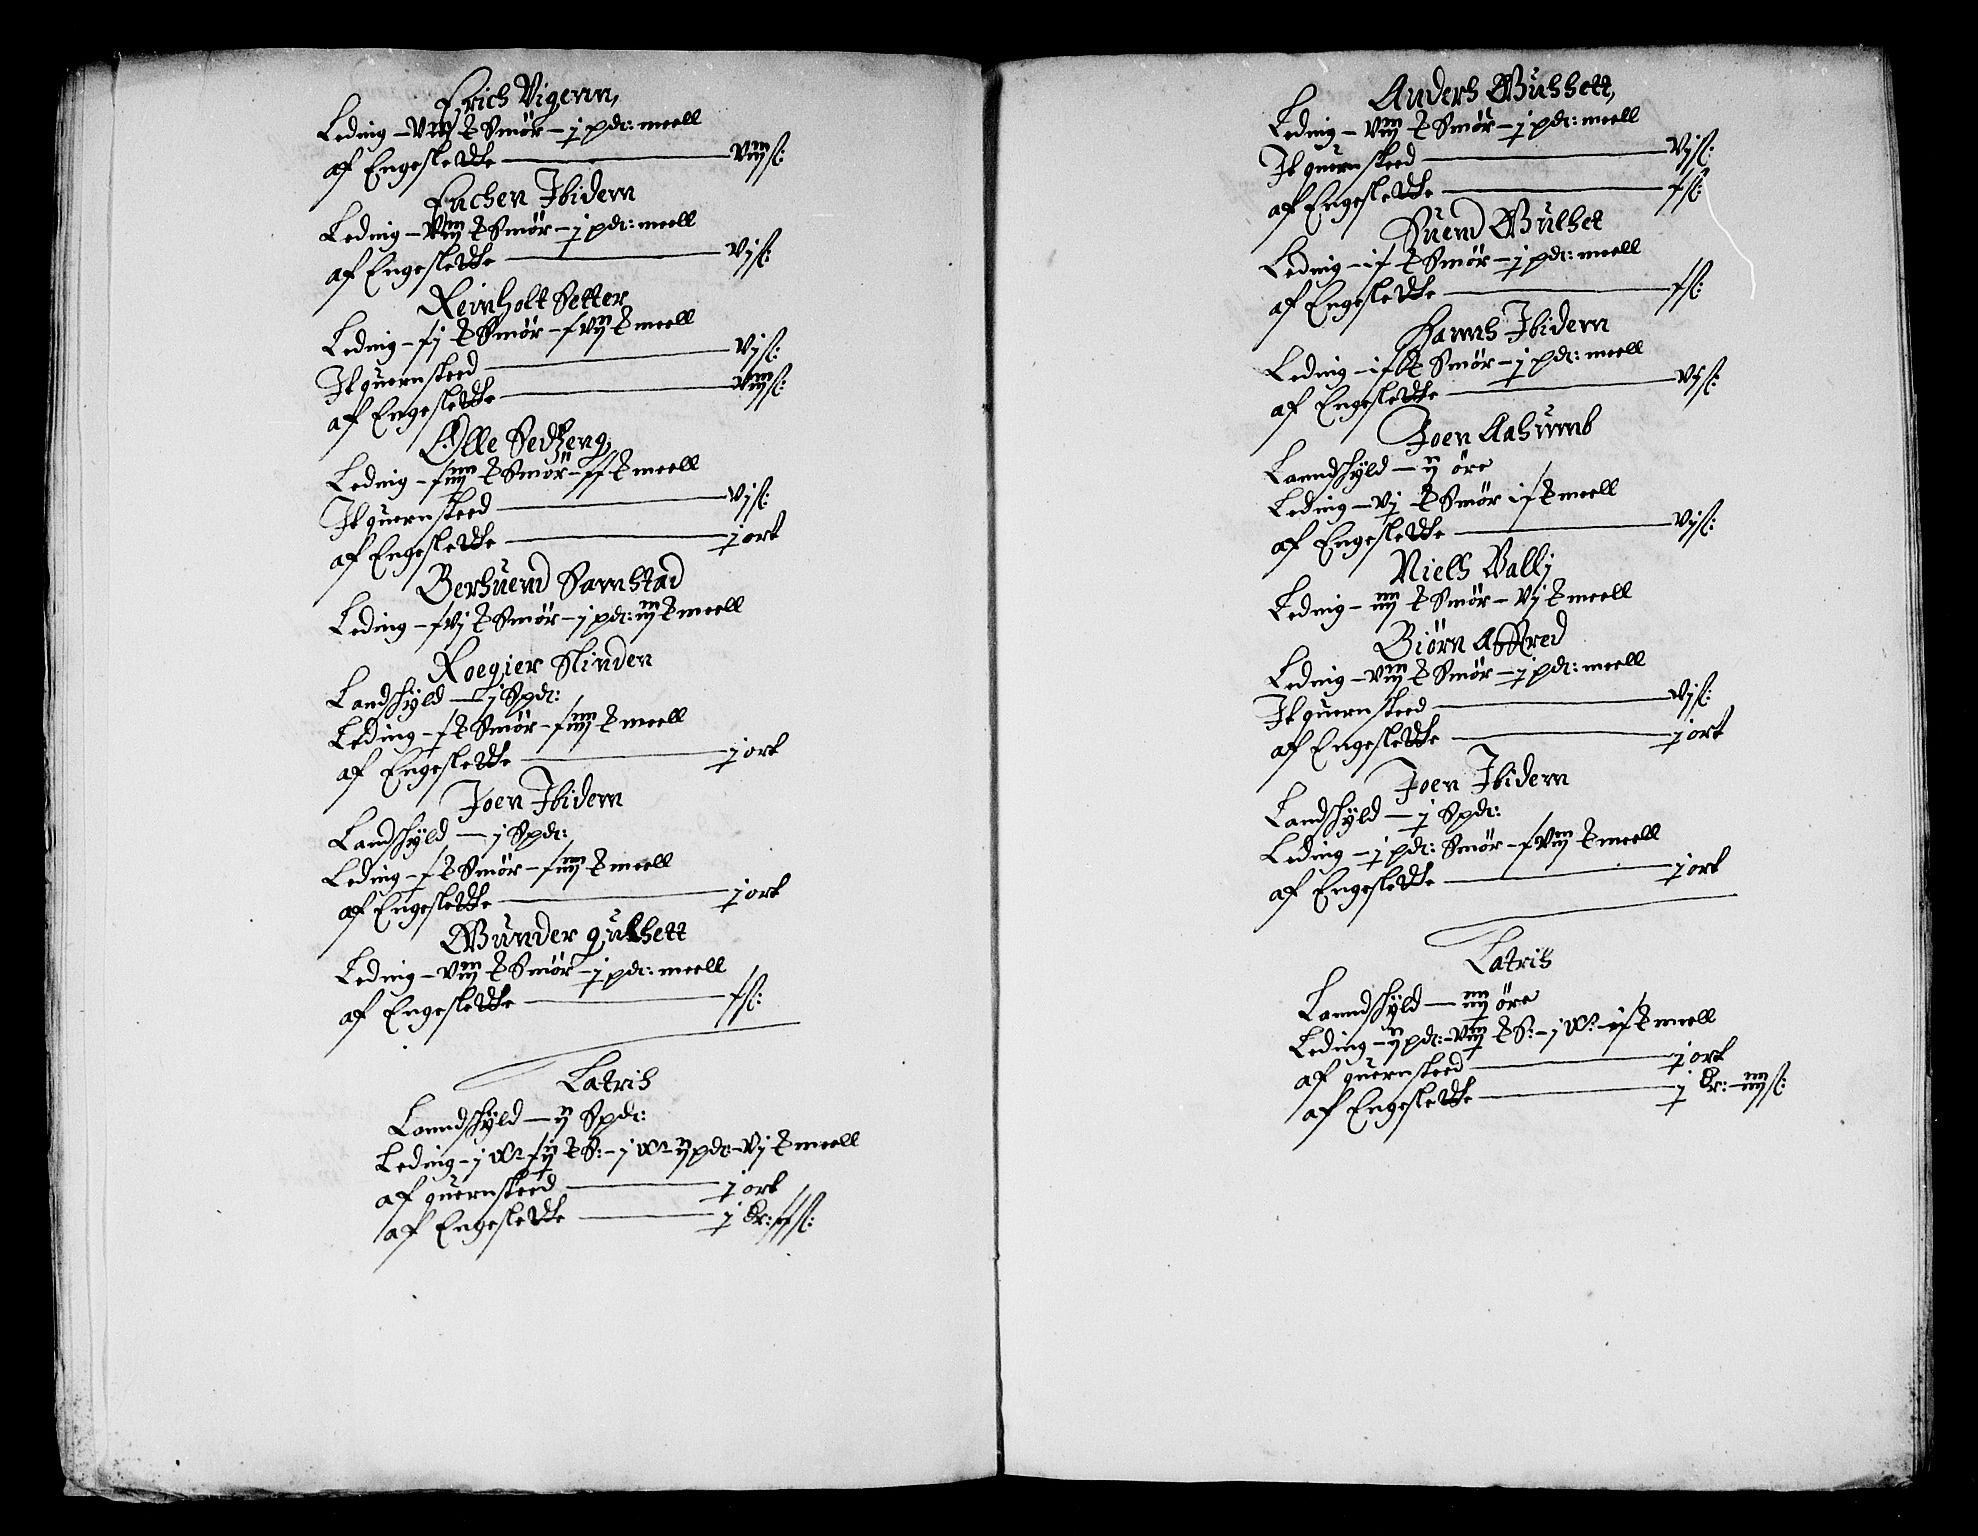 Erich Vigenn,
Leding – viij ℔ Smör – j pd: meell
af Engeslette — viij ſ:
Eachen Ibidem
Leding – viij ℔ Smör – j pd: meell
af Engeslette — vj ſ:
Reinholt Setter
Leding – xj ℔ Smör – xvij ℔ meell
It quernsteed — vj ſ:
af Engeslette — viij ſ:
Olle Sedzeng
Leding – xiiij ℔ Smör – xx ℔ meell
It quernsteed — vj ſ:
af Engeslette — j ort
Bersuend Samstad
Leding – xvj ℔ Smör – j pd: iij ℔ meell
Roegier Slinden
Landskyld — j Spd:
Leding – x ℔ Smör – xiiij ℔ meell
af Engeslette — j ort
Joen Ibidem
Landskyld — j Spd:
Leding – x ℔ Smör – xiiij ℔ meell
af Engeslette — j ort
Gunder gulsett
Leding – viij ℔ Smör – j pd: meell
af Engeslette — x ſ:
Latris
Lanndskyld — ij Spd:
Leding – j W: xij ℔ S: – j W: ij pd: – vj ℔ meell
af quernsteed — j ort
af Engeslette — j Dr: xx ſ:
Anders Gulsett,
Leding – viij ℔ Smör – j pd: meell
It quernsteed — vj ſ:
af Engeslette — x ſ:
Suend Gulset
Leding – ix ℔ Smör – j pd: meell
af Engeslette — x ſ:
Hanns Ibidem
Leding – ix ℔ Smör – j pd: meell
af Engeslette — vj ſ:
Joen Aasumb
Lanndskyld — ij öre
Leding – vj ℔ Smör ix ℔ meell
af Engeslette — vj ſ:
Niels Vallj
Leding – iiij ℔ Smör – vj ℔ meell
Biörn Affred
Leding – viij ℔ Smör – j pd: meell
It quernsteed — vj ſ:
af Engeslette — j ort
Joen Ibidem
Landskyld — j Spd:
Leding – j pd: Smör – xviij ℔ meell
af Engeslette — j ort
Latris
Lanndskyld — iiij öre
Leding – ij pd: – viij ℔ S: – j W: – ix ℔ meell
af quernsteed — j ort
af Engeslette — j Dr: – iiij ſ: